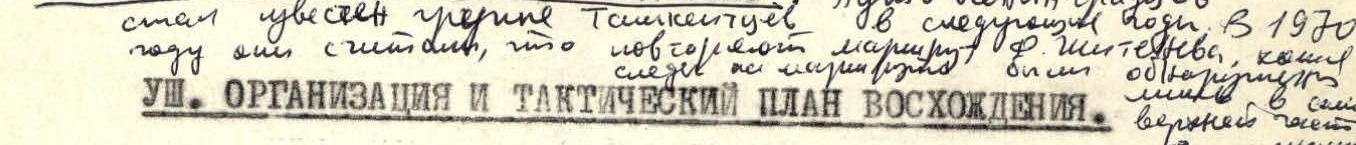 стал известен группе Ташкентцев в следующие годы. В 1970
году они считали, что повторяют маршрут Ф. Житенёва, какие
следы на маршруте были обнаружены
УШ. ОРГАНИЗАЦИЯ И ТАКТИЧЕСКИЙ ПЛАН ВОСХОЖДЕНИЯ.
лишь в
верхней части